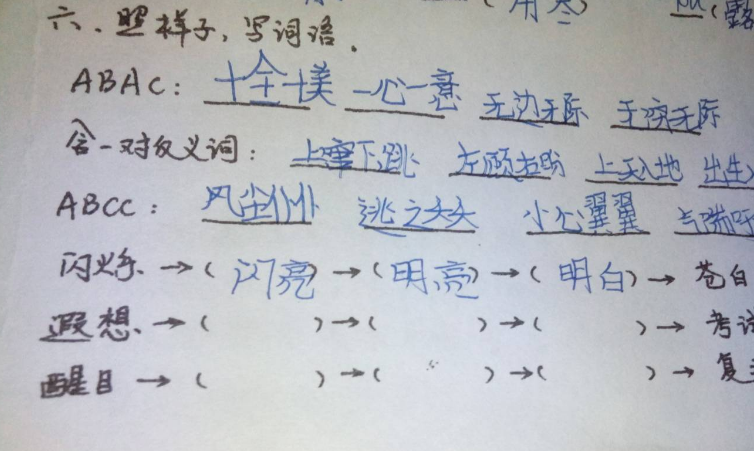 (用冬) (露
六、照样子,写词语.
ABAC: 十全十美 一心一意 无边无际 无穷无际
含一对反义词: 上窜下跳 左顾右盼 上天入地 出生入
ABCC: 风尘仆仆 逃之夭夭 小心翼翼 气喘吁
闪烁 →( 闪亮 )→( 明亮 )→( 明白 )→ 苍白
遐想 →( )→( )→( )→ 考试
醒目 →( )→( )→( )→ 复